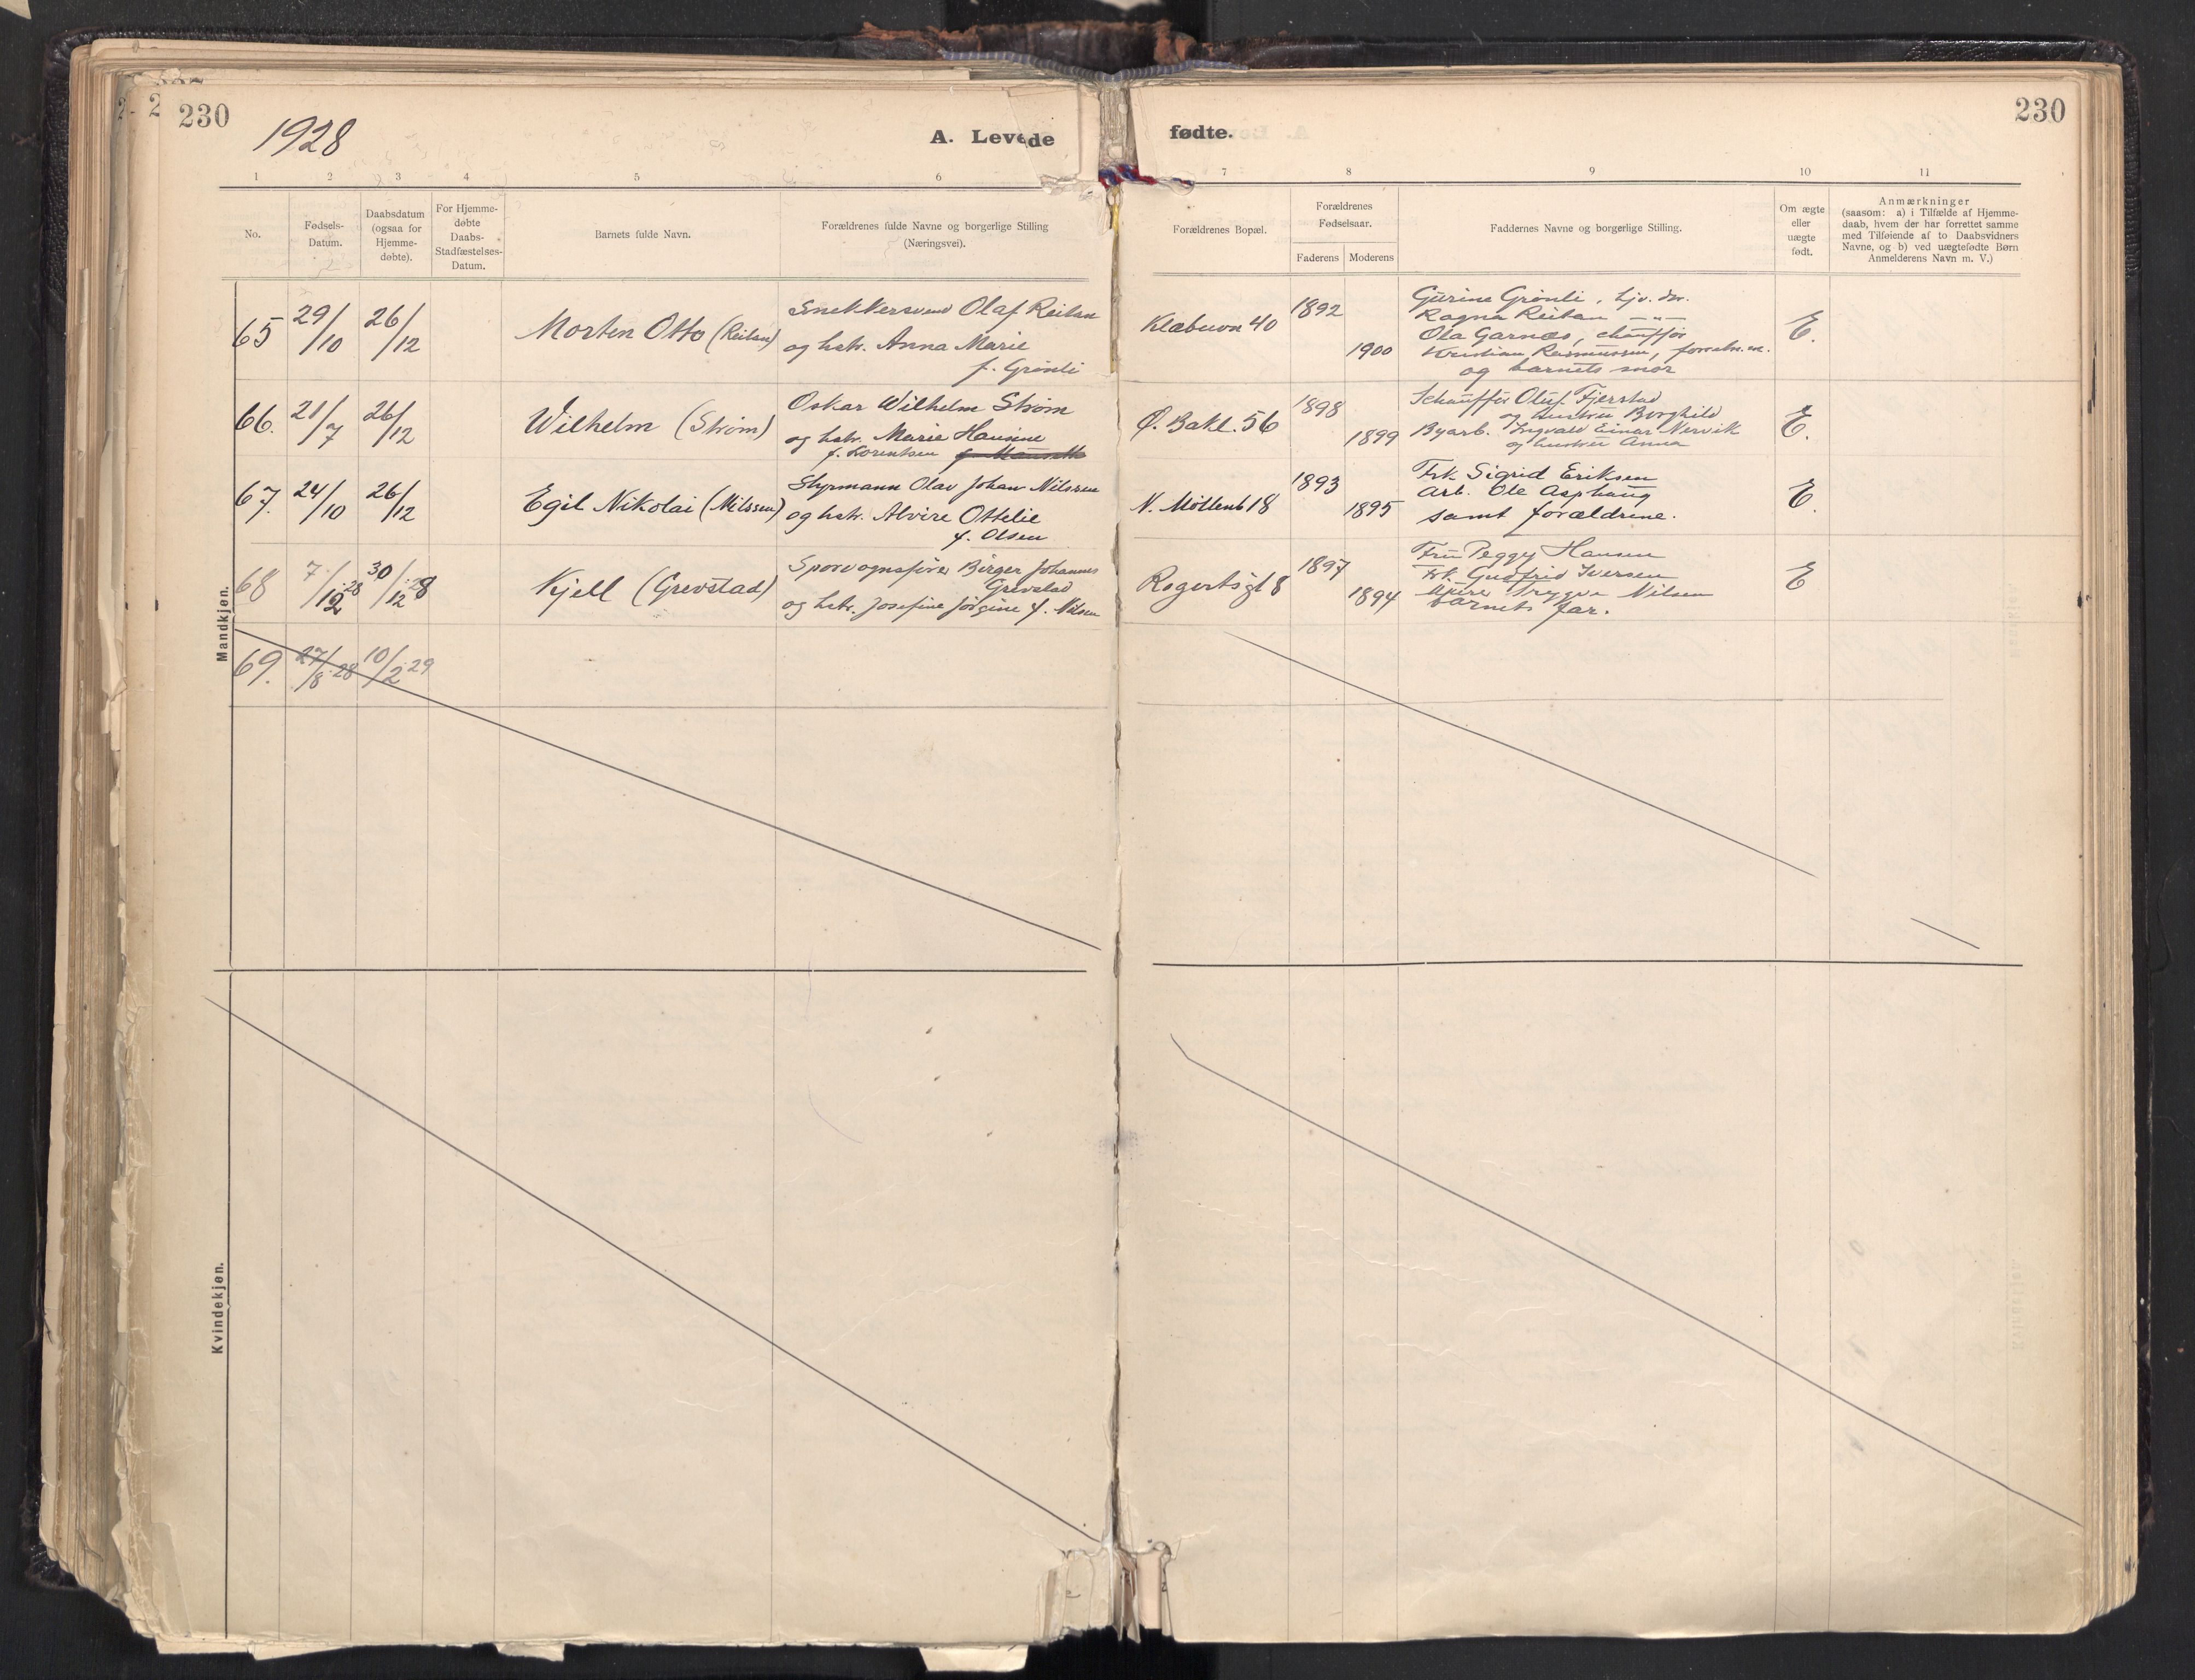 230
1928
A. Levende
fødte.
230
1 2 3 4 5 6 7 8 9 10 11
No.
Fødsels-
Datum.
Daabsdatum
(ogsaa for
Hjemme-
døbte).
For Hjemme-
døbte
Daabs-
Stadfæstelses-
Datum.
Barnets fulde Navn.
Forældrenes fulde Navne og borgerlige Stilling
(Næringsvei).
Forældrenes Bopæl.
Forældrenes
Fødselsaar.
Faderens Moderens
Faddernes Navne og borgerlige Stilling.
Om ægte
eller
uægte
født.
Anmærkninger
(saasom: a) i Tilfælde af Hjemme-
daab, hvem der har forrettet samme
med Tilføiende af to Daabsvidners
Navne, og b) ved uægtefødte Børn
Anmelderens Navn m. V.)
Mandkjøn.
65 29/10 26/12
Morten Otto (Reitan)
Snekkersvend Olaf Reitan
og hstr. Anna Marie
f. Grønli
Klæbuvn 40
1892
1900
Gurine Grønli,
Ragna Reitan — " —
Ola Garnæs, chauffør
Kristian Rasmussen,
og barnets mor
E.
66. 21/7 26/12
Wilhelm (Strøm)
Oskar Wilhelm Strøm
og hstr. Marie Hansine
f. Lorentsen
Ø. Bakl. 56
1898
1899
Schauffør Oluf Fjerstad
og hustru Borghild
Byarb. Ingvald Einar Nervik
og hustru Anna
E.
67. 24/10 26/12
Egil Nikolai (Nilssen)
Styrmann Olav Johan Nilssen
og hstr. Alvire Ottelie
f. Olsen
N. Møllenb 18
1893
1895
Frk. Sigrid Eriksen
Arb. Ole Asphaug
samt forældrene.
E.
68 7/12 28 30/12 28
Kjell (Grevstad)
Sporvognsfører Birger Johannes
Grevstad
og hstr. Josefine Jørgine f. Nilsen
Rogertsgt 8
1897
1894
Fru Peggy Hansen
Frk. Gudfrid Iversen
Trygve Nilsen
barnets far.
E
69. 27/8 28 10/2 29
Kvindekjøn.